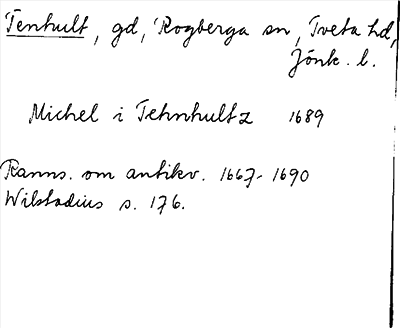 Tenhult, gd, Rogberga sn, Tveta hd,
Jönk. l.
Michel i Tehnhultz 1689
Ranns. om antikv. 1667-1690
Wilstadius s. 176.